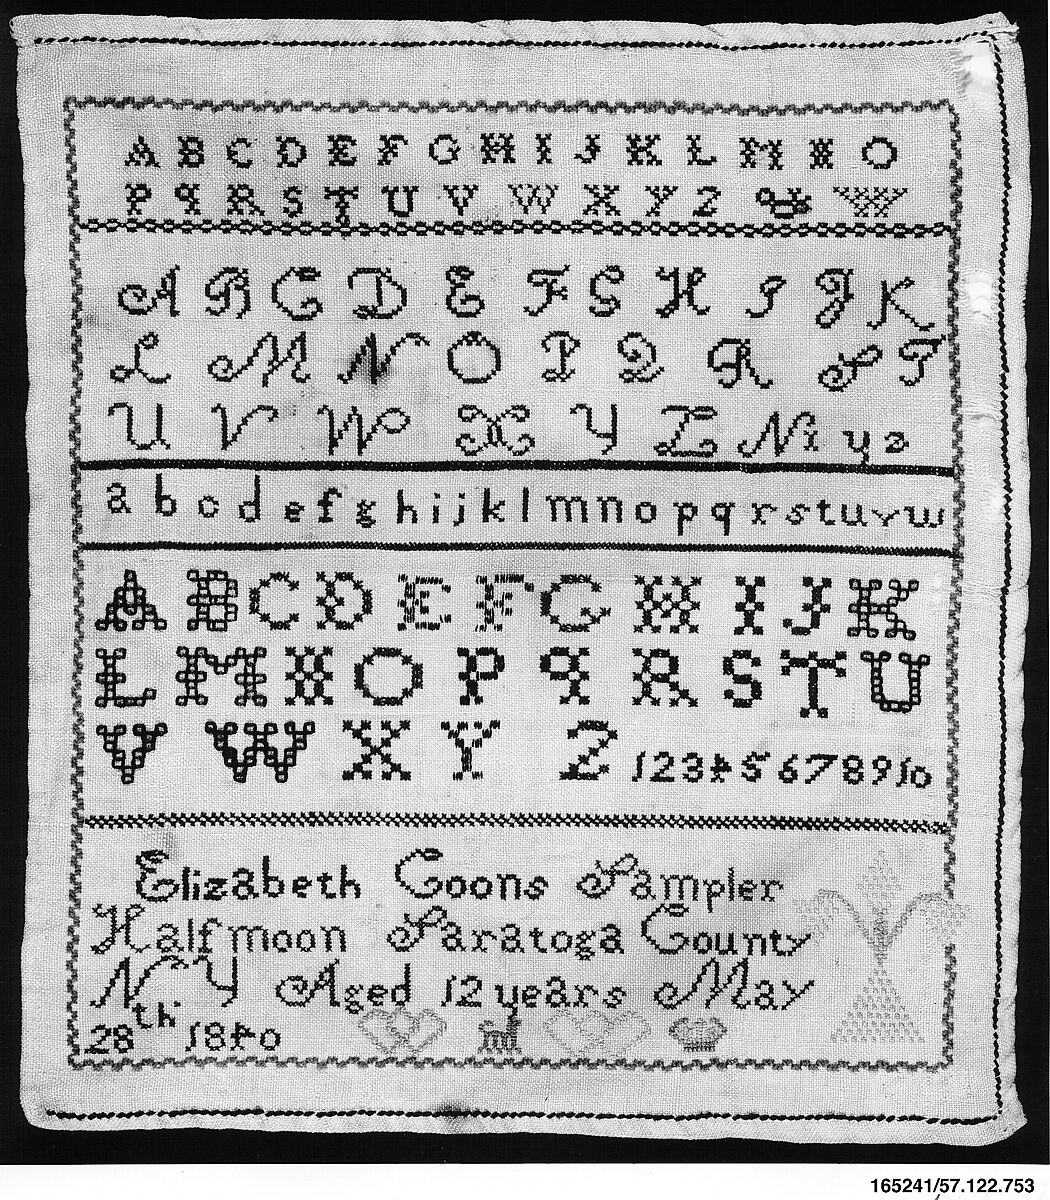 A B C D E F G H I J K L M N O
P q R S T U V W X Y Z
A B C D E F G H I J K
L M N O P Q R S T
U V W X Y Z N i y z
a b c d e f g h i j k l m n o p q r s t u v w
A B C D E F G H I J K
L M N O P q R S T U
V W X Y Z 1 2 3 4 5 6 7 8 9 10
Elizabeth Coons Sampler
Halfmoon Saratoga County
N Y Aged 12 years May
28th 1840
165241/57.122.753